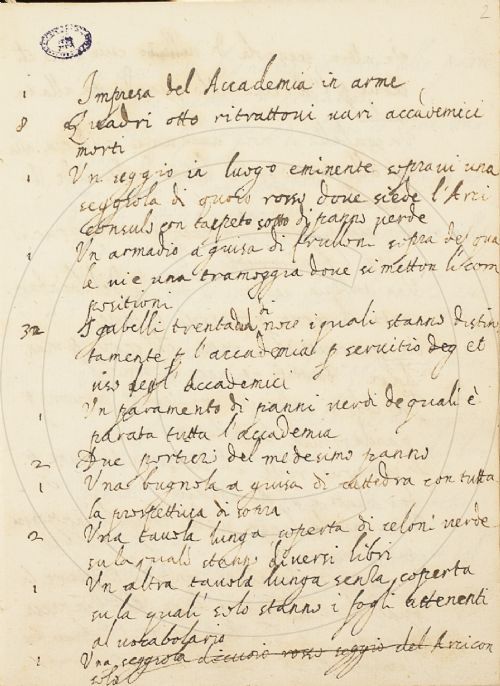 2
1 Impresa del Accademia in arme
8 Quadri otto ritrattovi vari accademici
morti
1 Un seggio in luogo eminente sopravi una
seggiola di quoio rosso dove siede l'Arci
consulo con tappeto sotto di panno verde
1 Un armadio a guisa di frulloni sopra del qua
le vi e una tramoggia dove si metton le com
positioni
32 Sgabelli trentadua di noce i quali stanno distin
tamente p l'accademia p servitio deg et
uso degl' Accademici
1 Un paramento di panni verdi de quali è
parata tutta l'accademia
2 Due portiere del medesimo panno
1 Una bugnola a guisa di cattedra con tutta
la prospettiva di sopra
2 Una tavola lunga coperta di celoni verde
su la quali stanno diversi libri
1 Un altra tavola lunga senza coperta
su la quali solo stanno i fogli attenenti
al vocabolario
1 Una seggiola di cuoio rosso seggio del Arcicon
solo